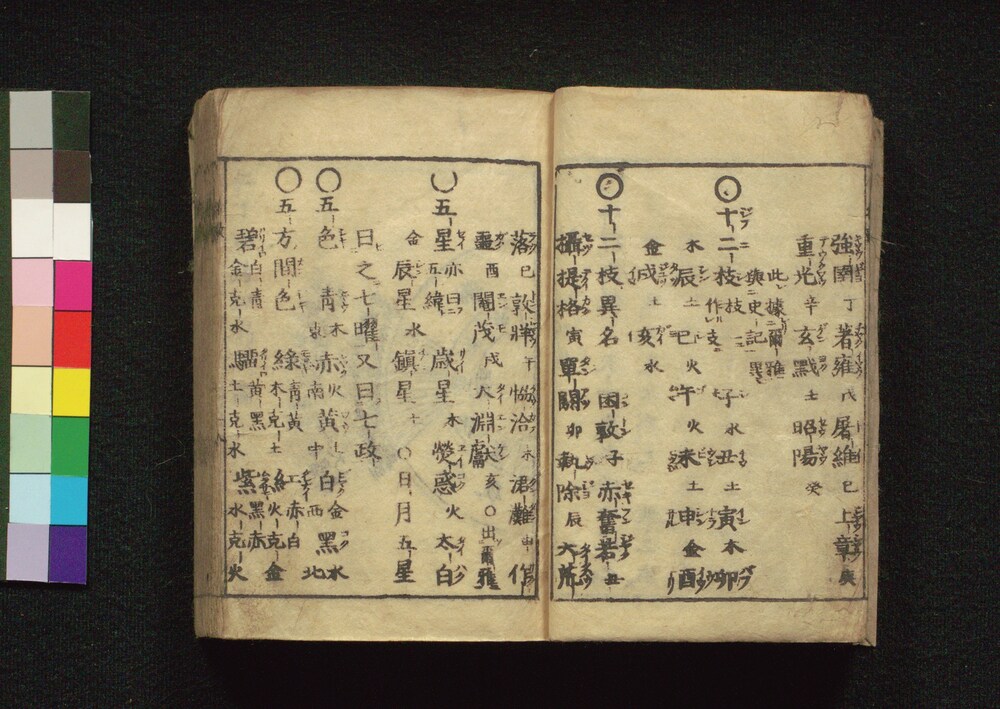 強圉丁著雍戊屠維巳上章庚
重光辛玄黓壬昭陽癸
此據爾雅
與史記異
◎十二枝枝作支子水丑土寅木卯
木辰土巳火午火未土申金酉
金戌土亥水
◎十二枝異名困敦子赤奮若丑
攝提格寅單閼卯執除辰大荒
落巳敦牂午協洽未涒灘申作
噩酉閹茂戌大淵獻亥○出爾雅
○五星亦曰五緯歳星木熒惑火太白
金辰星水鎮星土○日月五星
日之七曜又曰七政
○五色青木東赤火南黄土中白金西黒水北
○五方間色綠青黄木克土紅赤白火克金
碧白青金克水騮黄黒土克水紫黒赤水克火